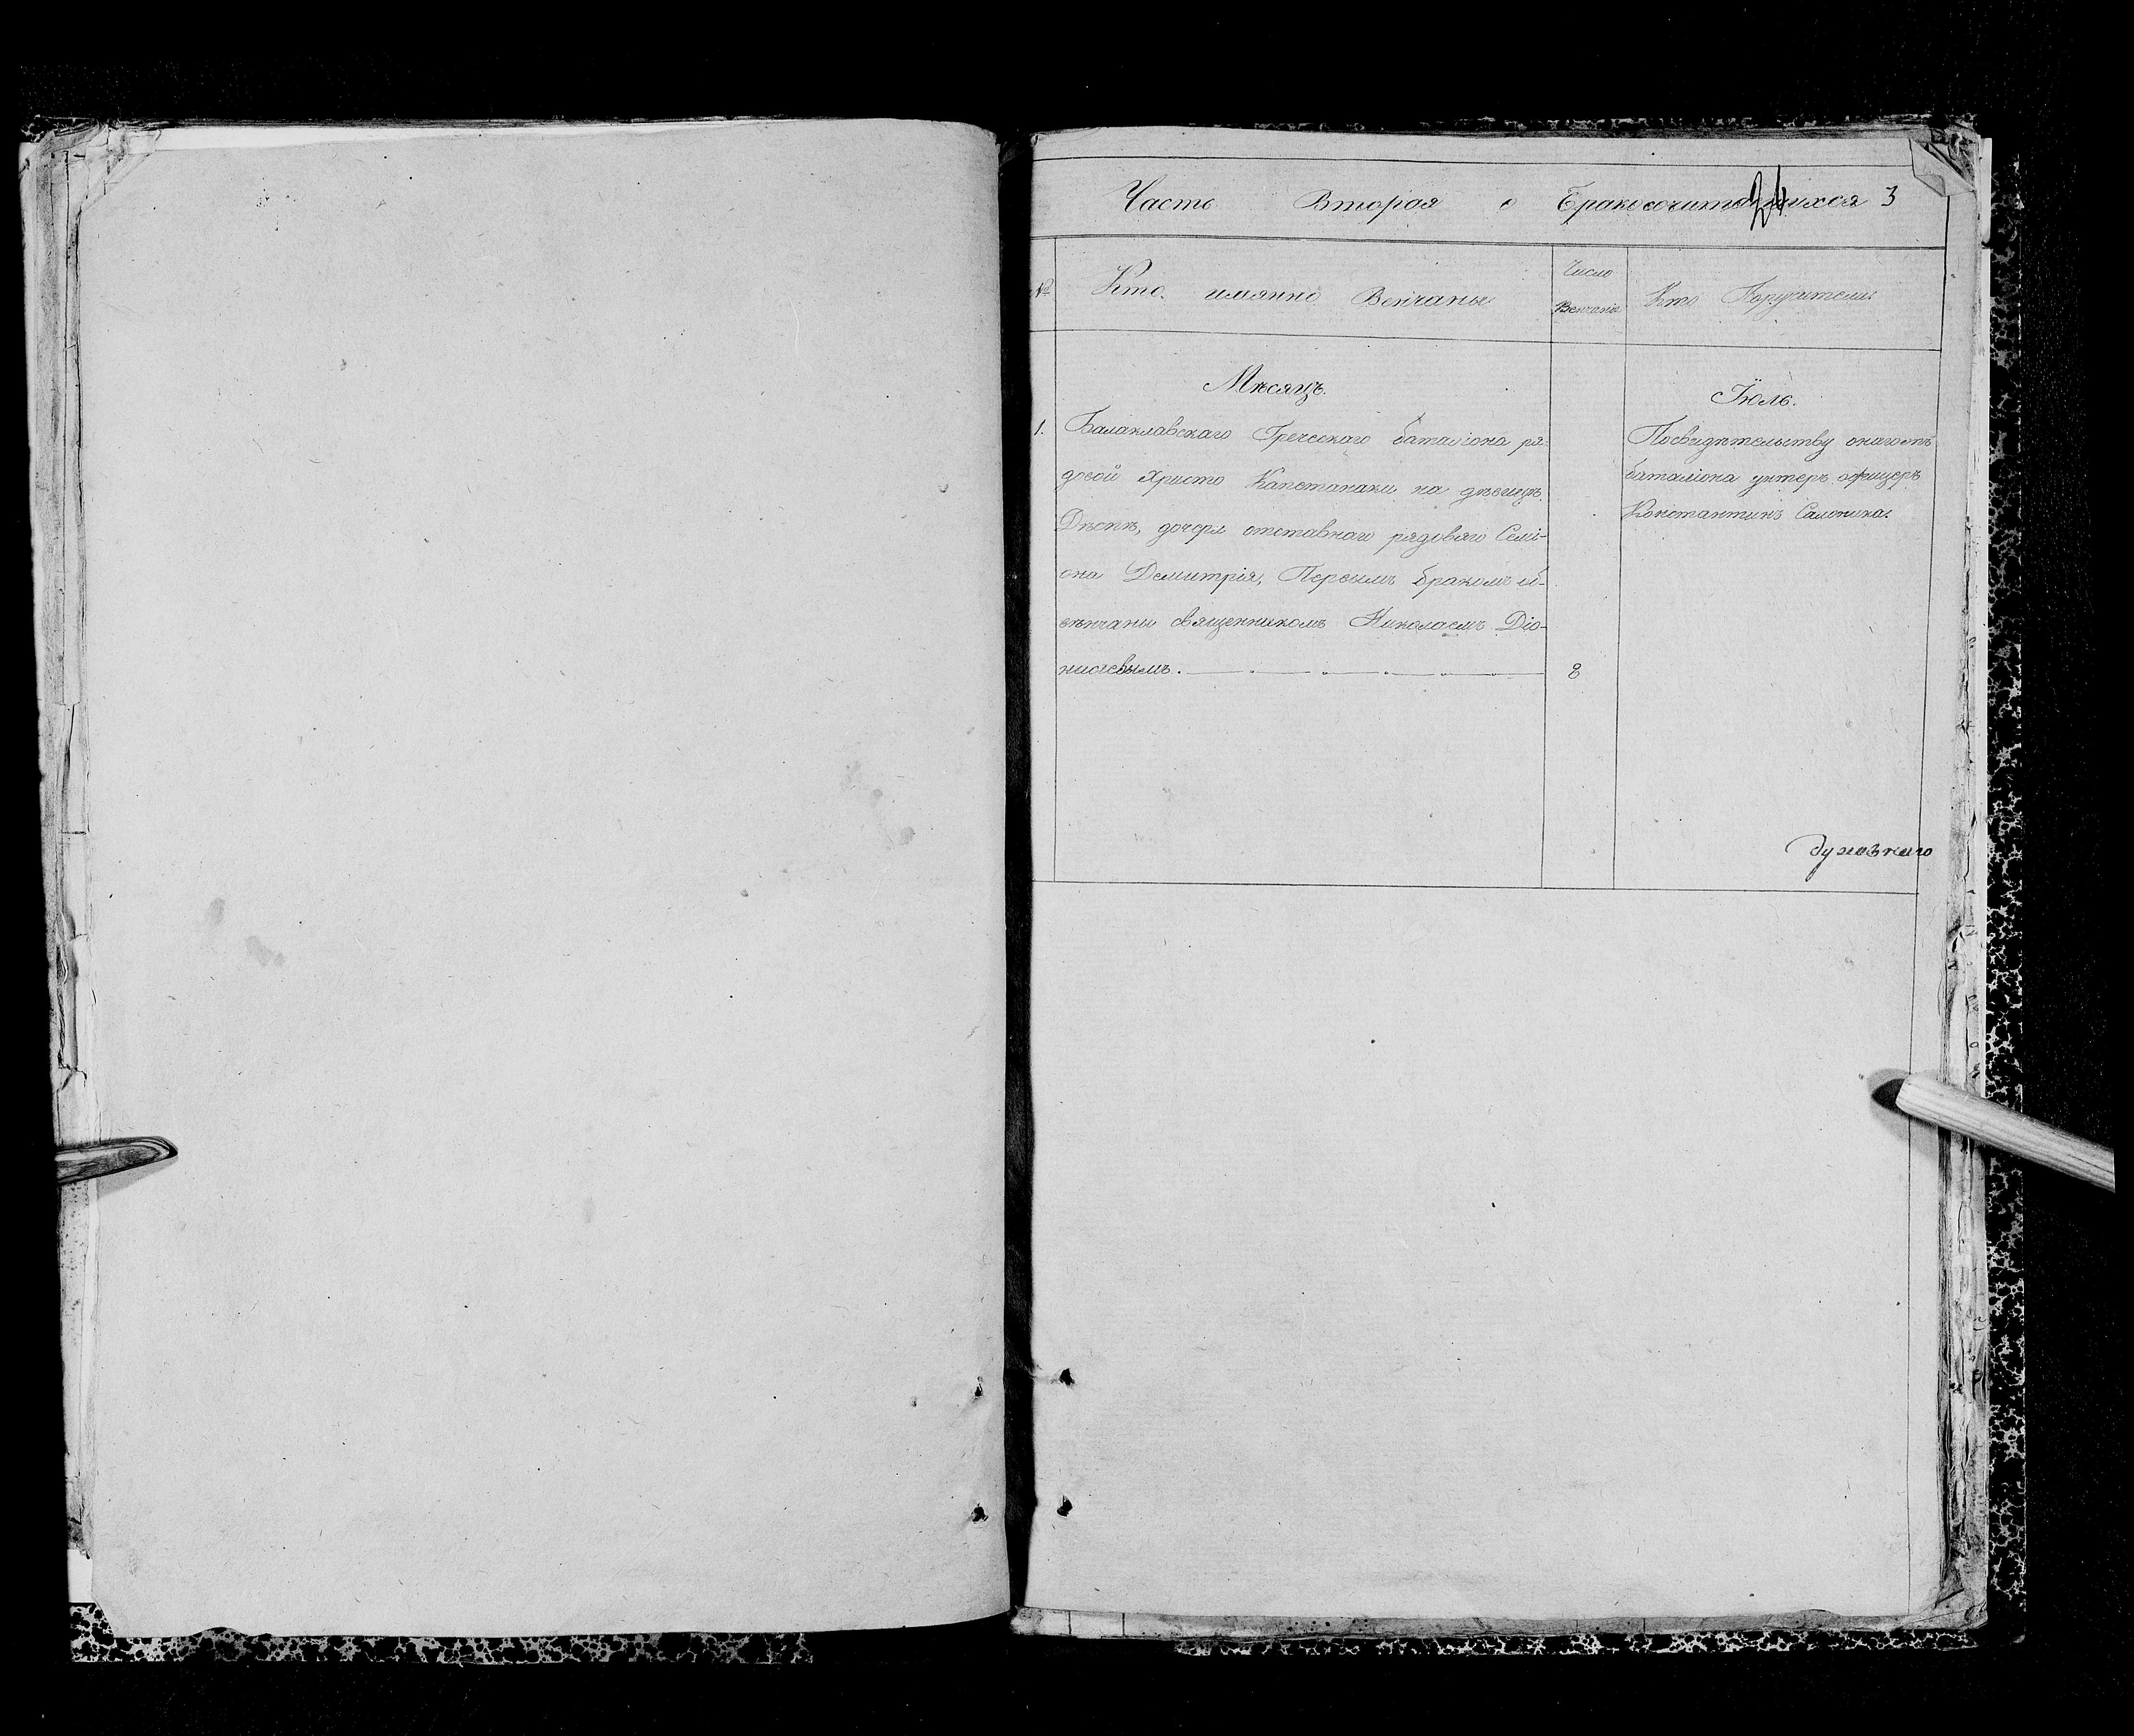 Часть Вторая о Бракосочитавшихся 3
24
№ Кто имянно Венчаны Число Венчанiя Кто Поручители
Мѣсяцъ. Iюль.
1. Балаклавскаго Греческаго баталiона ря-
довой Христо Капетанаки на дѣвицѣ
Дѣспѣ, дочери отставнаго рядоваго Семi-
она Демитрiя, Первымъ бракомъ
вѣнчаны священникомъ Николаемъ Дiо-
нисiевымъ. 8
Посвидѣтельству онагожъ
баталiона унтеръ офицеръ
Константинъ Салоники.